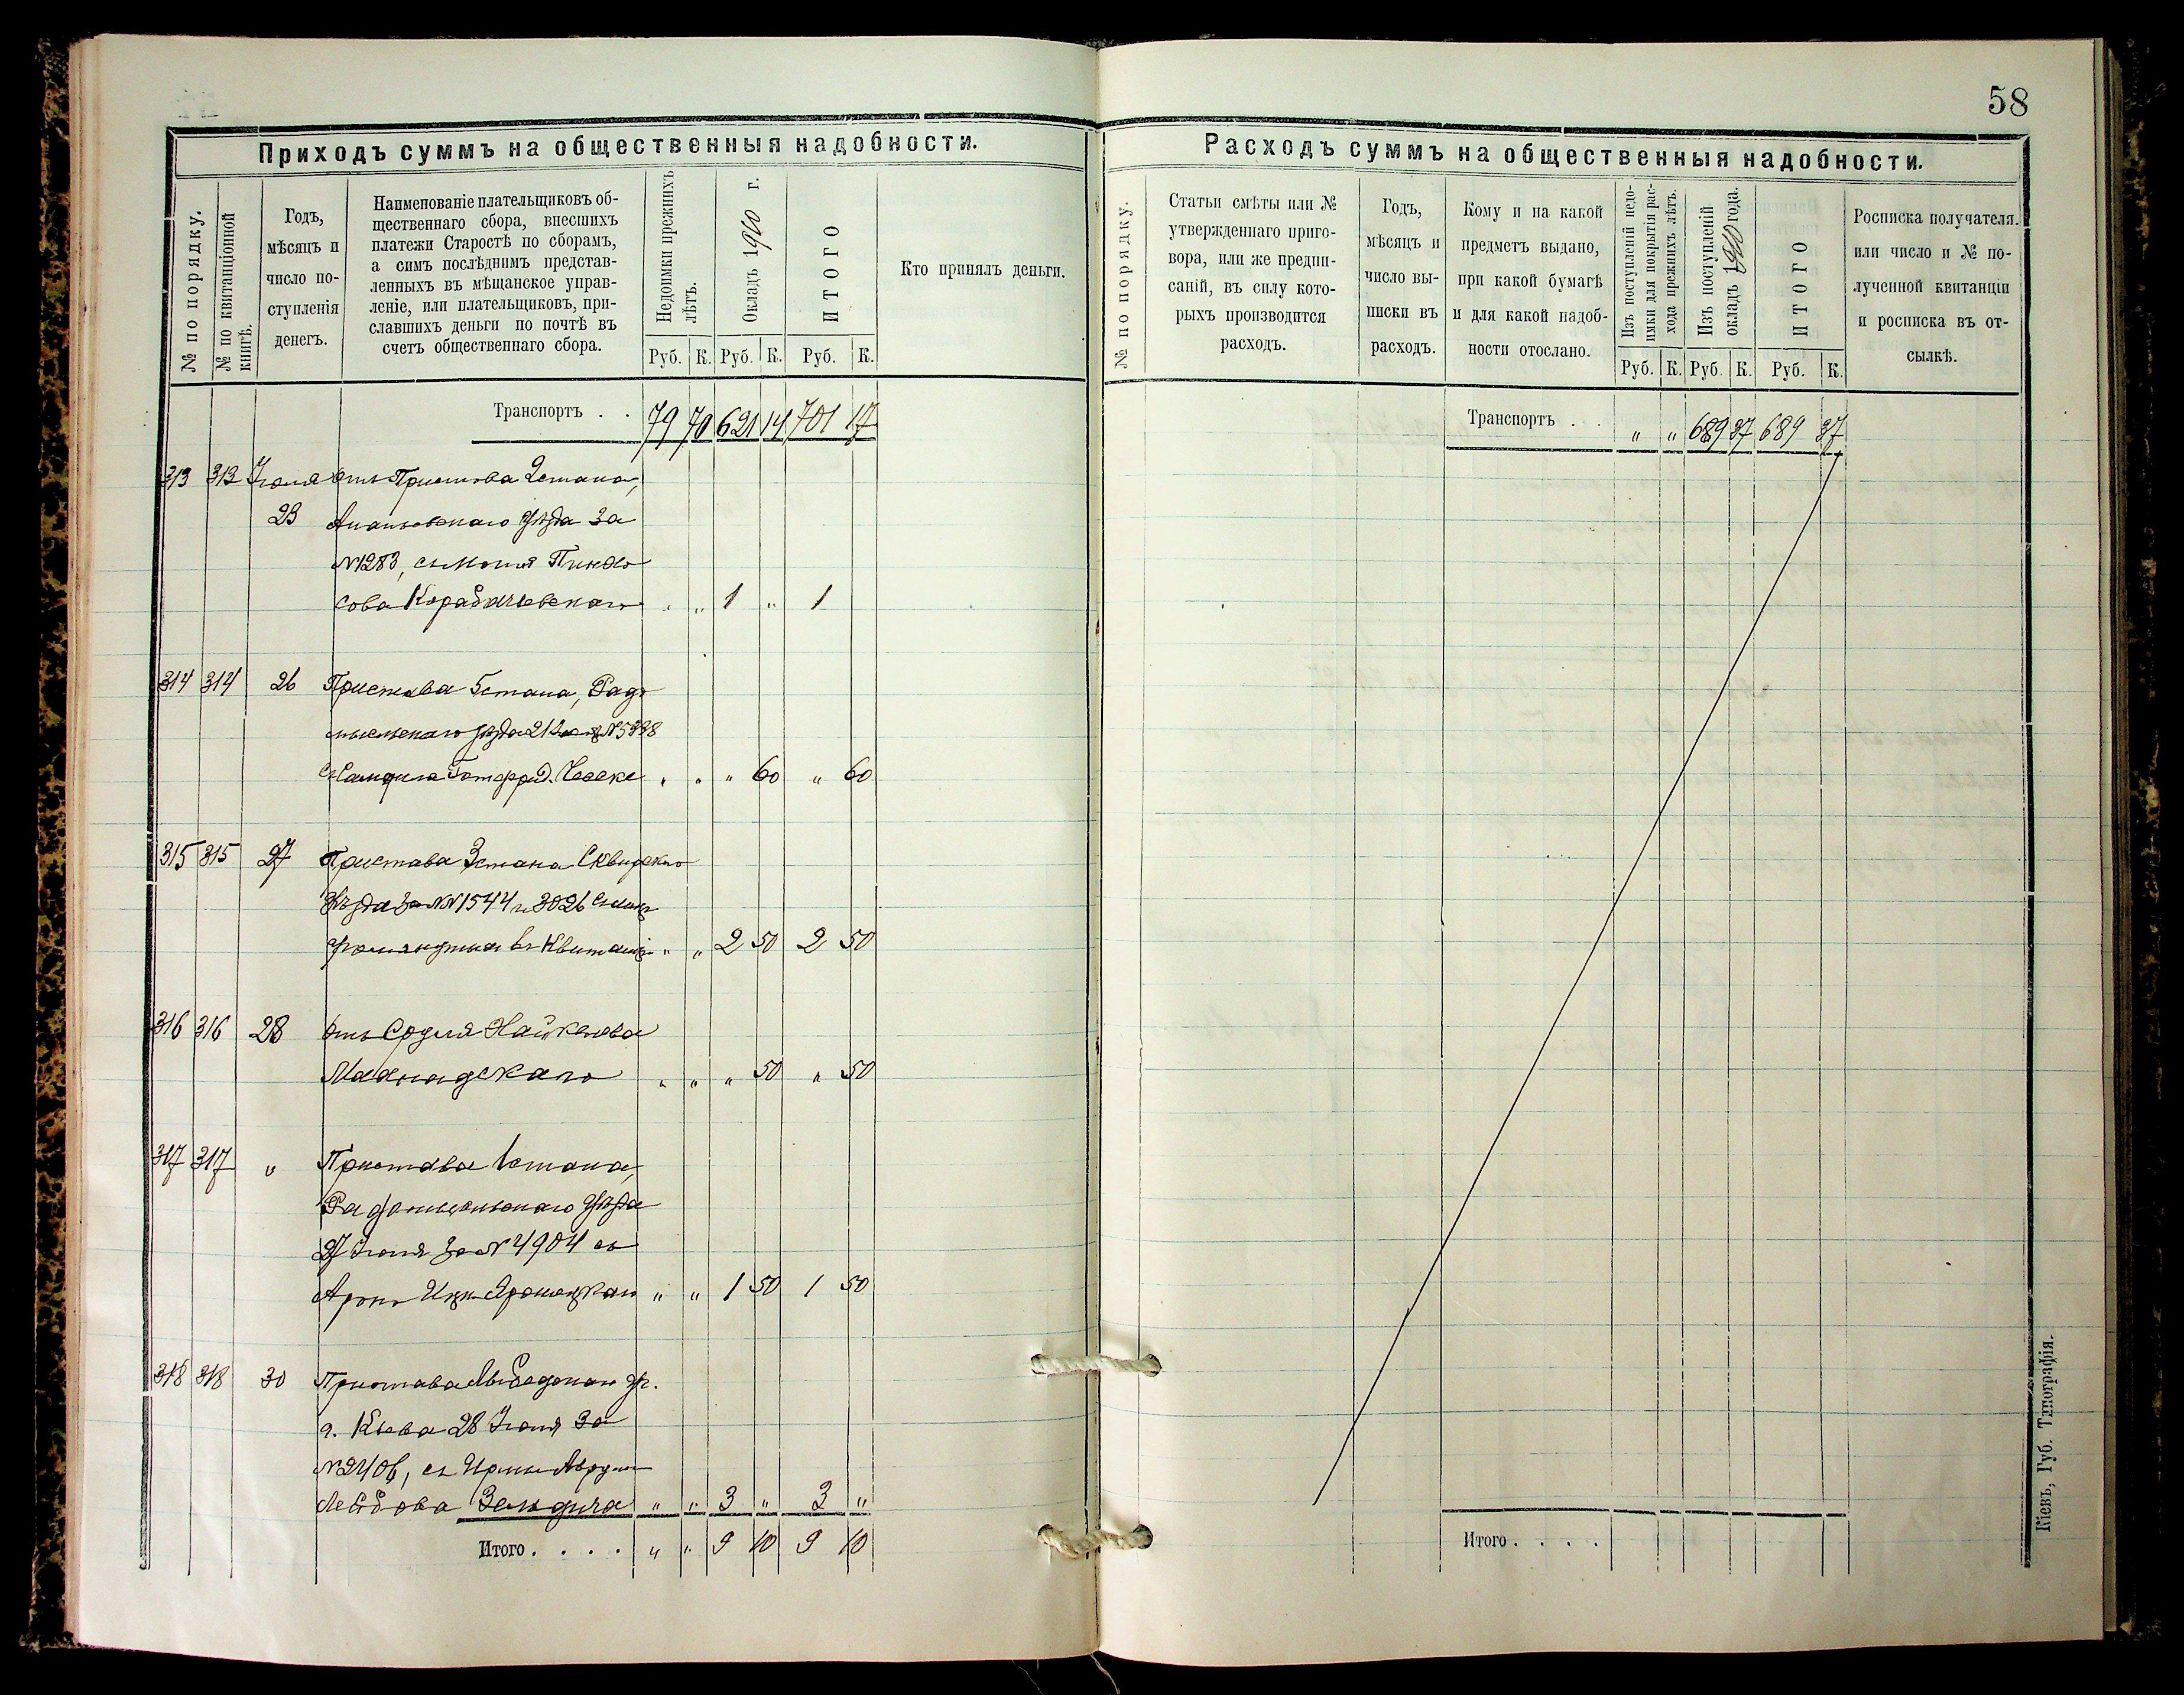 58
Приходъ суммъ на общественныя надобности.
№ по порядку.
№ по квитанціонной
книгѣ.
Годъ,
мѣсяцъ и
число по-
ступленія
денегъ.
Наименованіе плательщиковъ об-
щественнаго сбора, внесшихъ
платежи Старостѣ по сборамъ,
а симъ послѣднимъ представ-
ленныхъ въ мѣщанское управ-
леніе, или плательщиковъ, при-
славшихъ деньги по почтѣ въ
счетъ общественнаго сбора.
Недоимки прежнихъ
лѣтъ.
Окладъ 1910 г.
ИТОГО
Руб. К. Руб. К. Руб. К.
Кто принялъ деньги.
Транспортъ . . 79 70 621 14 701 17
313 313 Іюля отъ Пристава 2 стана,
23 Ананьевскаго уѣзда за
№ 1283, съ Пинхо
сова " " 1 " 1
314 314 26 Пристава 5 стана, Радо
мысльскаго уѣзда 21 №
" " " 60 " 60
315 315 27 Пристава 3 стана Сквирскаго
уѣзда за №№ 1544 и 3026 съ лицъ
въ квитанціи " " 2 50 2 50
316 316 28 отъ Сруля
" " " 50 " 50
317 317 " Пристава 1 стана,
Радомысльскаго уѣзда
27 Іюля за № 4904 съ
Арона " " 1 50 1 50
318 318 30 Пристава Лыбедскаго уч.
г. Кіева 28 Іюля за
№ съ
Лейбова " " 3 " 3 "
Итого . . . . " " 9 10 9 10
Расходъ суммъ на общественныя надобности.
№ по порядку.
Статьи смѣты или №
утвержденнаго приго-
вора, или же предпи-
саній, въ силу кото-
рыхъ производится
расходъ.
Годъ,
мѣсяцъ и
число вы-
писки въ
расходъ.
Кому и на какой
предметъ выдано,
при какой бумагѣ
и для какой надоб-
ности отослано.
Изъ поступленій недо-
имки для покрытія рас-
хода прежнихъ лѣтъ.
Изъ поступленій
окладъ 1910 года.
ИТОГО
Руб. К. Руб. К. Руб. К.
Росписка получателя.
или число и № по-
лученной квитанціи
и росписка въ от-
сылкѣ.
Транспортъ . . " " 689 37 689 37
Итого . . . .
Кіевъ, Губ. Типографія.